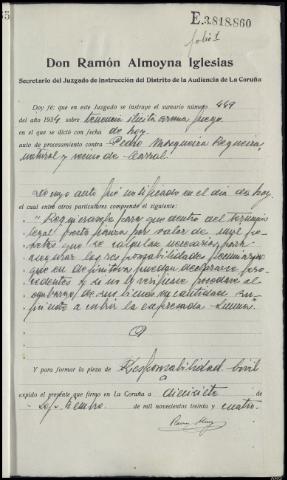 E.3.818.860
folio 1
Don Ramón Almoyna Iglesias
Secretario del Juzgado de instrucción del Distrito de la Audiencia de La Coruña
Doy fé: que en este Juzgado se instruye el sumario número 449
del año 1934 sobre tenencia ilícita arma fuego
en el que se dictó con fecha de hoy
auto de procesamiento contra Pedro Regueira
natural y vecino de Carral
Cuyo auto fué notificado en el día de hoy
el cual entre otros particulares comprende el siguiente:
"Requiérasele para que dentro del término
legal preste fianza por valor de mil pe-
setas que se calculan necesarias para
asegurar las responsabilidades pecuniarias
que en definitiva puedan declararse proce-
dentes y si no lo verifique procédase al
embargo de sus bienes en cantidad su-
ficiente a cubrir la expresada suma
Y para formar la pieza de Responsabilidad civil
expido el presente que firmo en La Coruña a diecisiete de
Septiembre de mil novecientos treinta y cuatro.